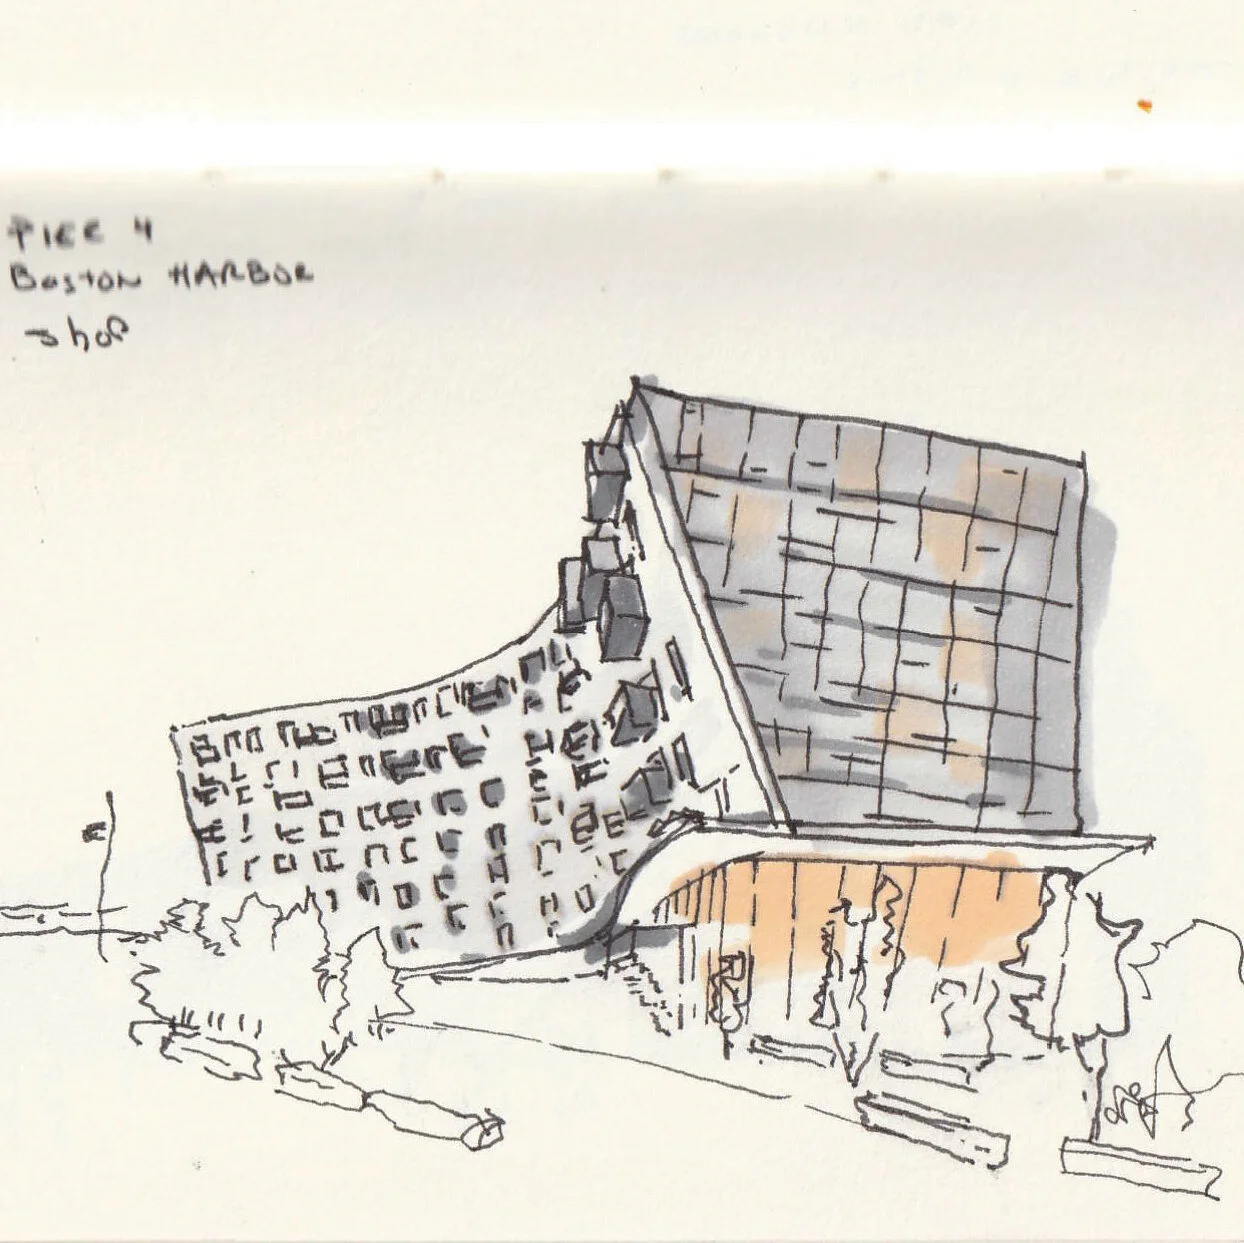 PIER 4
BOSTON HARBOR
shop